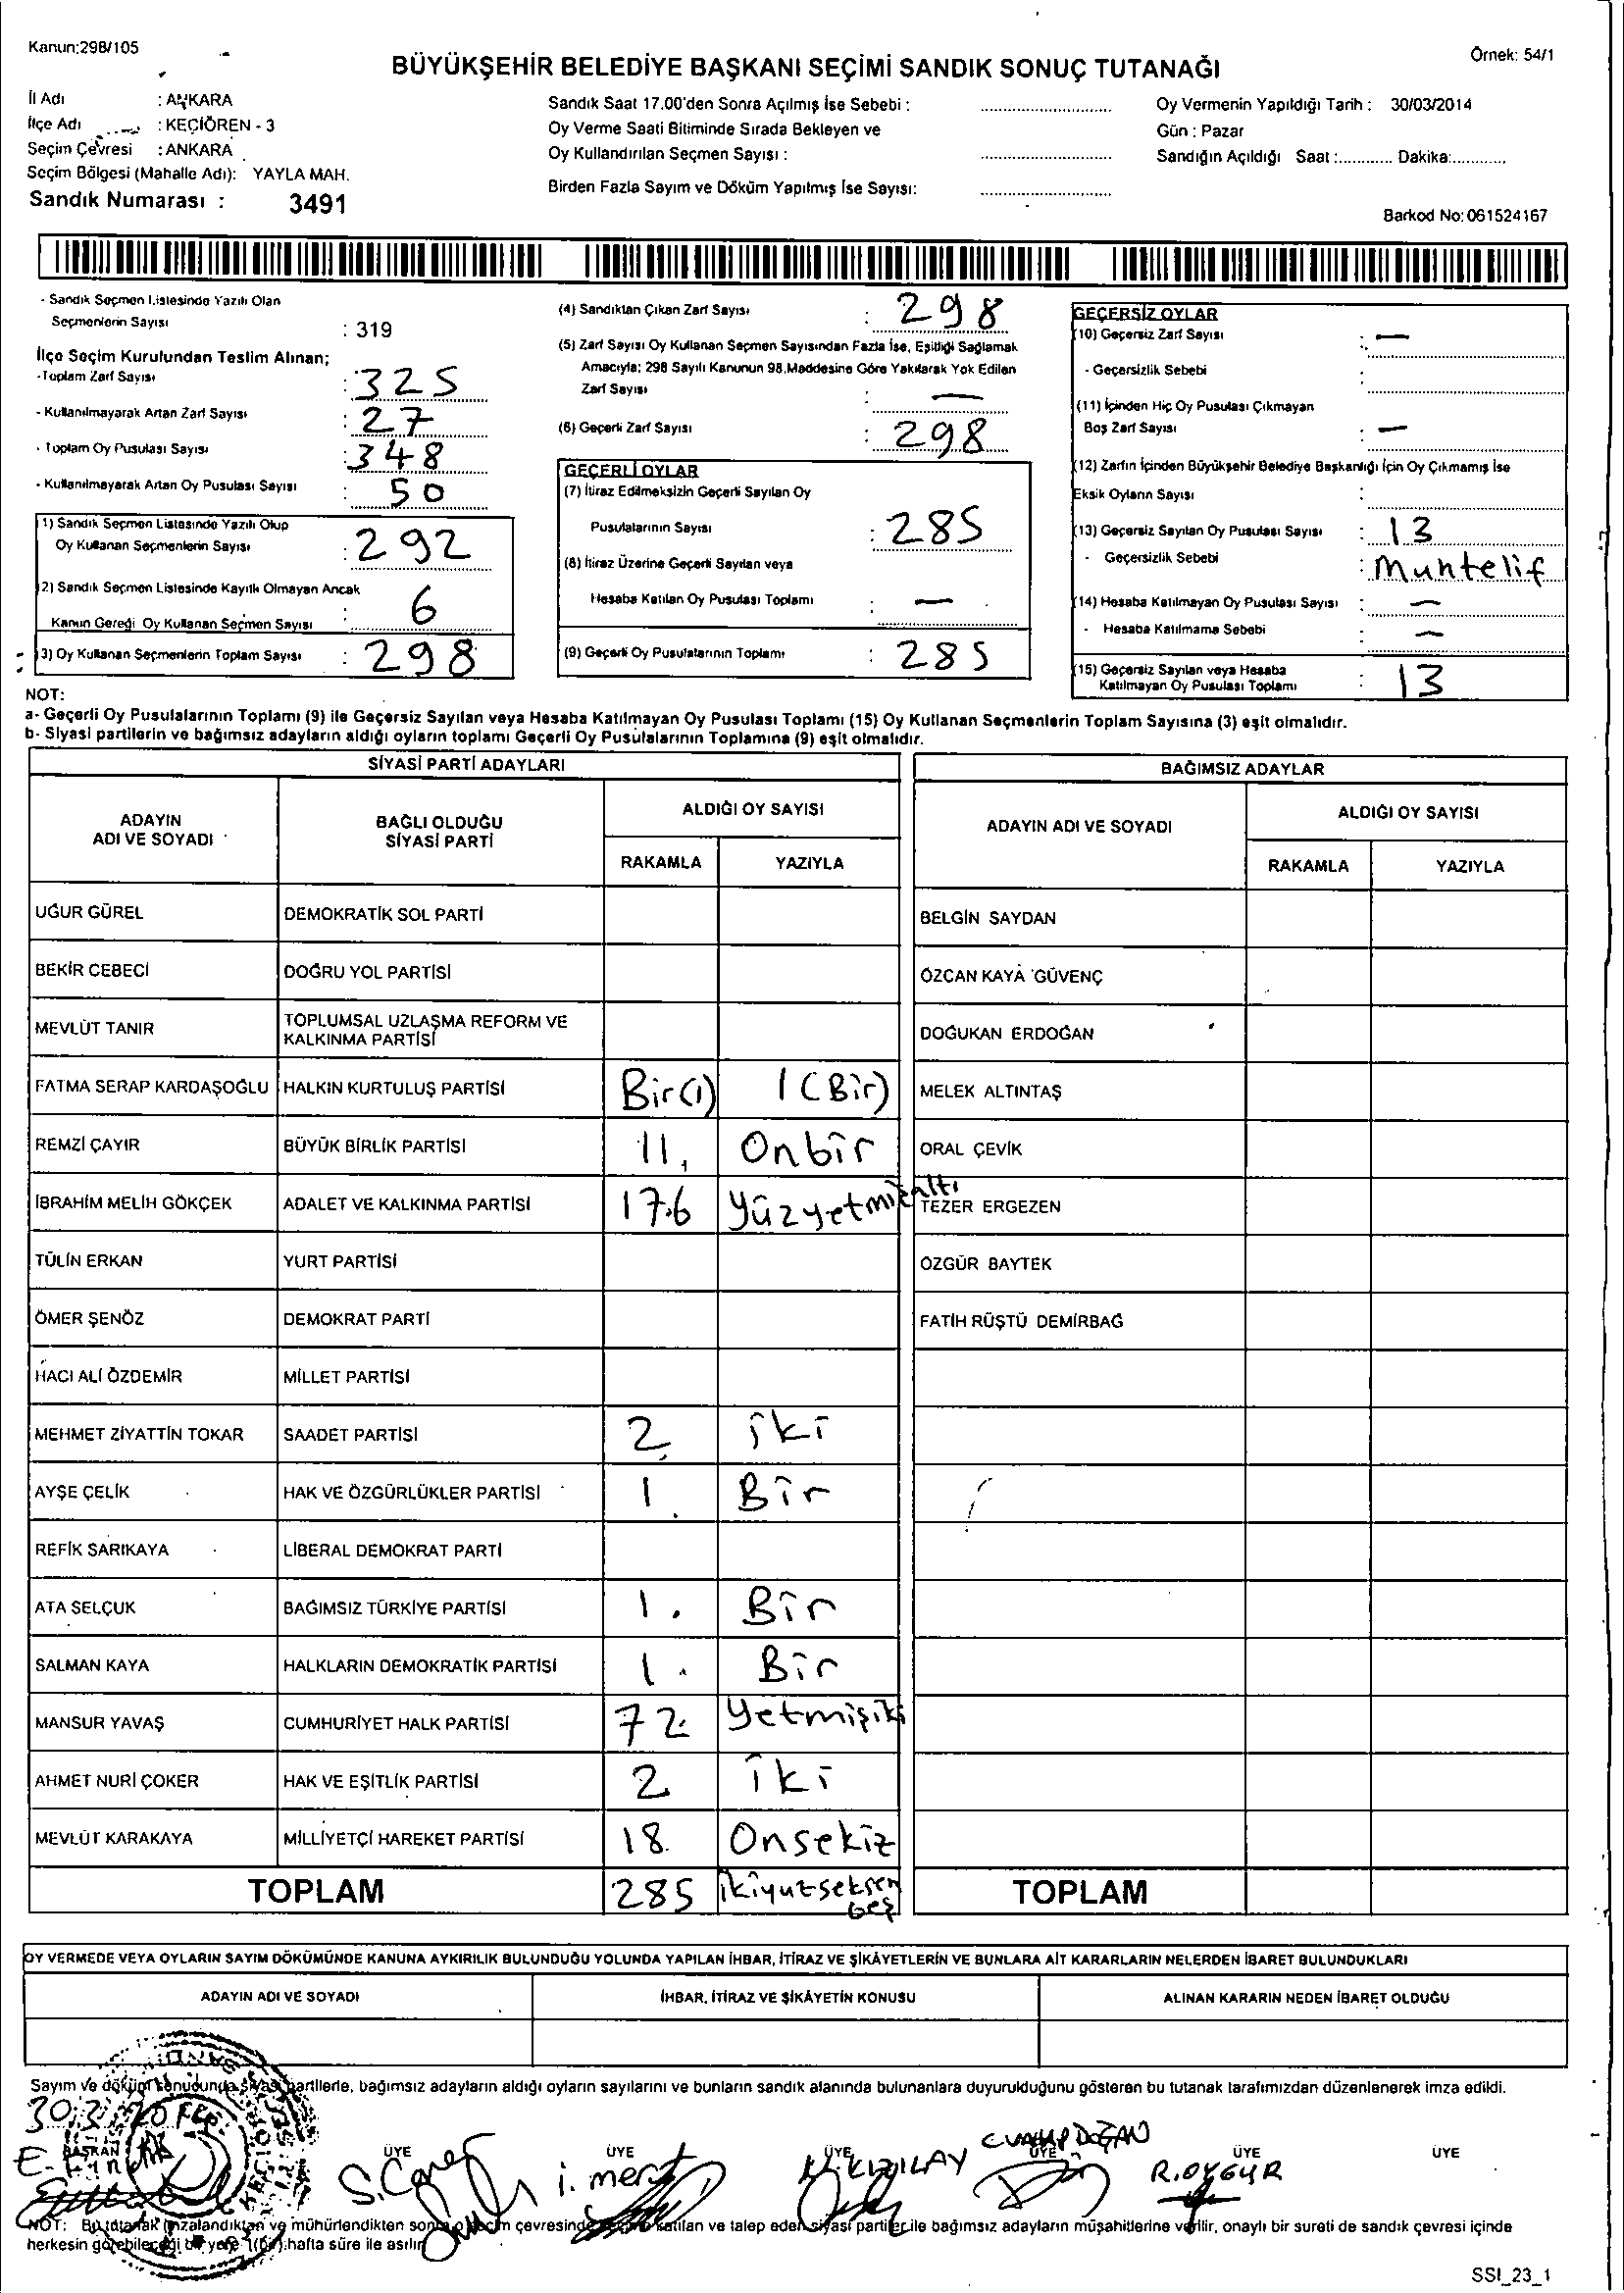 Kanun:298/105
Örnek: 54/1
BÜYÜKŞEHİR BELEDİYE BAŞKANI SEÇİMİ SANDIK SONUÇ TUTANAĞI
İl Adı : ANKARA
İlçe Adı : KEÇİÖREN - 3
Seçim Çevresi : ANKARA
Seçim Bölgesi (Mahalle Adı): YAYLA MAH.
Sandık Numarası : 3491
Sandık Saat 17.00'den Sonra Açılmış İse Sebebi :
Oy Verme Saati Bitiminde Sırada Bekleyen ve
Oy Kullandırılan Seçmen Sayısı :
Birden Fazla Sayım ve Döküm Yapılmış İse Sayısı:
Oy Vermenin Yapıldığı Tarih : 30/03/2014
Gün : Pazar
Sandığın Açıldığı Saat :............ Dakika:............
Barkod No: 061524167
- Sandık Seçmen Listesinde Yazılı Olan
Seçmenlerin Sayısı : 319
İlçe Seçim Kurulundan Teslim Alınan;
-Toplam Zarf Sayısı : 325
- Kullanılmayarak Artan Zarf Sayısı : 27
- Toplam Oy Pusulası Sayısı : 348
- Kullanılmayarak Artan Oy Pusulası Sayısı : 50
1) Sandık Seçmen Listesinde Yazılı Olup
Oy Kullanan Seçmenlerin Sayısı : 292
2) Sandık Seçmen Listesinde Kayıtlı Olmayan Ancak
Kanun Gereği Oy Kullanan Seçmen Sayısı : 6
3) Oy Kullanan Seçmenlerin Toplam Sayısı : 298
(4) Sandıktan Çıkan Zarf Sayısı : 298
(5) Zarf Sayısı Oy Kullanan Seçmen Sayısından Fazla İse, Eşitliği Sağlamak
Amacıyla; 298 Sayılı Kanunun 98.Maddesine Göre Yakılarak Yok Edilen
Zarf Sayısı : —
(6) Geçerli Zarf Sayısı : 298
GEÇERLİ OYLAR
(7) İtiraz Edilmeksizin Geçerli Sayılan Oy
Pusulalarının Sayısı : 285
(8) İtiraz Üzerine Geçerli Sayılan veya
Hesaba Katılan Oy Pusulası Toplamı : —
(9) Geçerli Oy Pusulalarının Toplamı : 285
GEÇERSİZ OYLAR
(10) Geçersiz Zarf Sayısı : —
- Geçersizlik Sebebi :
(11) İçinden Hiç Oy Pusulası Çıkmayan
Boş Zarf Sayısı : —
(12) Zarfın İçinden Büyükşehir Belediye Başkanlığı İçin Oy Çıkmamış İse
Eksik Oyların Sayısı :
(13) Geçersiz Sayılan Oy Pusulası Sayısı : 13
- Geçersizlik Sebebi : Muhtelif
(14) Hesaba Katılmayan Oy Pusulası Sayısı : —
- Hesaba Katılmama Sebebi : —
(15) Geçersiz Sayılan veya Hesaba
Katılmayan Oy Pusulası Toplamı : 13
NOT:
a- Geçerli Oy Pusulalarının Toplamı (9) ile Geçersiz Sayılan veya Hesaba Katılmayan Oy Pusulası Toplamı (15) Oy Kullanan Seçmenlerin Toplam Sayısına (3) eşit olmalıdır.
b- Siyasi partilerin ve bağımsız adayların aldığı oyların toplamı Geçerli Oy Pusulalarının Toplamına (9) eşit olmalıdır.
SİYASİ PARTİ ADAYLARI
ADAYIN ADI VE SOYADI
BAĞLI OLDUĞU SİYASİ PARTİ
ALDIĞI OY SAYISI
RAKAMLA YAZIYLA
UĞUR GÜREL DEMOKRATİK SOL PARTİ
BEKİR CEBECİ DOĞRU YOL PARTİSİ
MEVLÜT TANIR TOPLUMSAL UZLAŞMA REFORM VE KALKINMA PARTİSİ
FATMA SERAP KARDAŞOĞLU HALKIN KURTULUŞ PARTİSİ Bir(1) 1 (Bir)
REMZİ ÇAYIR BÜYÜK BİRLİK PARTİSİ 11, Onbir
İBRAHİM MELİH GÖKÇEK ADALET VE KALKINMA PARTİSİ 176 Yüzyetmişaltı
TÜLİN ERKAN YURT PARTİSİ
ÖMER ŞENÖZ DEMOKRAT PARTİ
HACI ALİ ÖZDEMİR MİLLET PARTİSİ
MEHMET ZİYATTİN TOKAR SAADET PARTİSİ 2 iki
AYŞE ÇELİK HAK VE ÖZGÜRLÜKLER PARTİSİ 1 Bir
REFİK SARIKAYA LİBERAL DEMOKRAT PARTİ
ATA SELÇUK BAĞIMSIZ TÜRKİYE PARTİSİ 1. Bir
SALMAN KAYA HALKLARIN DEMOKRATİK PARTİSİ 1. Bir
MANSUR YAVAŞ CUMHURİYET HALK PARTİSİ 72 Yetmişiki
AHMET NURİ ÇOKER HAK VE EŞİTLİK PARTİSİ 2 iki
MEVLÜT KARAKAYA MİLLİYETÇİ HAREKET PARTİSİ 18. Onsekiz
TOPLAM 285 ikiyüzseksen beş
BAĞIMSIZ ADAYLAR
ADAYIN ADI VE SOYADI
ALDIĞI OY SAYISI
RAKAMLA YAZIYLA
BELGİN SAYDAN
ÖZCAN KAYA GÜVENÇ
DOĞUKAN ERDOĞAN
MELEK ALTINTAŞ
ORAL ÇEVİK
TEZER ERGEZEN
ÖZGÜR BAYTEK
FATİH RÜŞTÜ DEMİRBAĞ
TOPLAM
OY VERMEDE VEYA OYLARIN SAYIM DÖKÜMÜNDE KANUNA AYKIRILIK BULUNDUĞU YOLUNDA YAPILAN İHBAR, İTİRAZ VE ŞİKÂYETLERİN VE BUNLARA AİT KARARLARIN NELERDEN İBARET BULUNDUKLARI
ADAYIN ADI VE SOYADI İHBAR, İTİRAZ VE ŞİKÂYETİN KONUSU ALINAN KARARIN NEDEN İBARET OLDUĞU
Sayım ve döküm sonucunda siyasi partilerle, bağımsız adayların aldığı oyların sayılarını ve bunların sandık alanında bulunanlara duyurulduğunu gösteren bu tutanak tarafımızdan düzenlenerek imza edildi.
BAŞKAN ÜYE ÜYE ÜYE ÜYE ÜYE ÜYE
i. mert KIZILAY R.OYGUR
NOT: Bu tutanak imzalandıktan ve mühürlendikten sonra o seçim çevresinde seçime katılan ve talep eden siyasi partiler ile bağımsız adayların müşahitlerine verilir, onaylı bir sureti de sandık çevresi içinde
herkesin görebileceği bir yere 1(bir) hafta süre ile asılır.
SSI_23_1